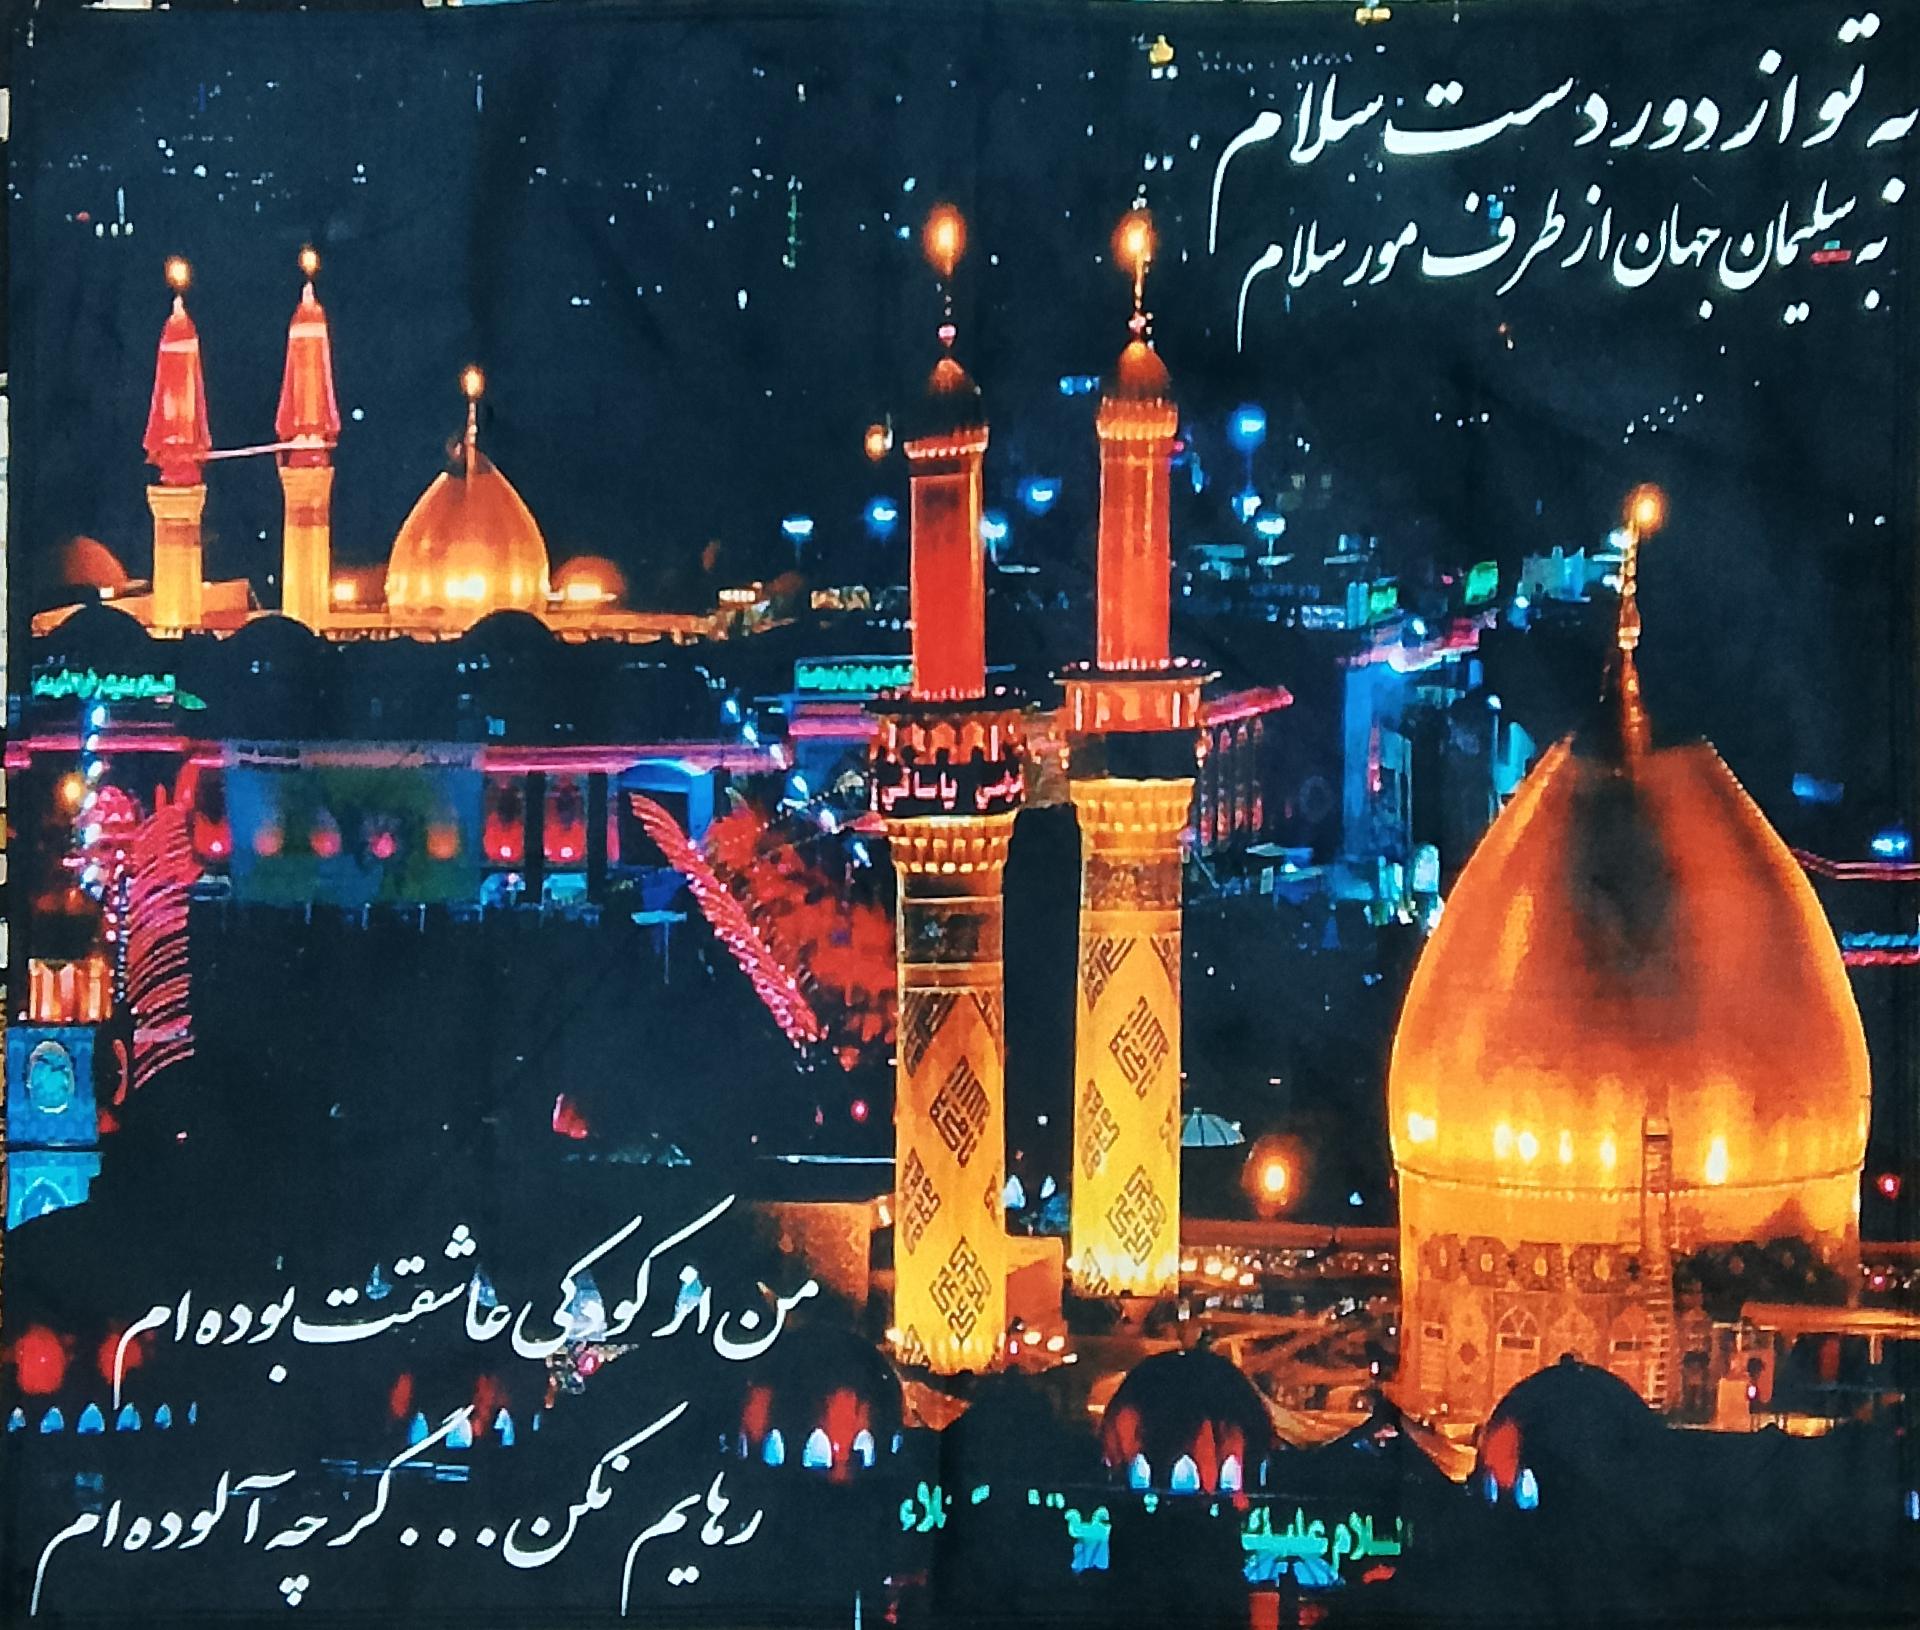 به تو از دور دست سلام
به سلیمان جهان از طرف مور سلام
من از کودکی عاشقت بوده ام
رهایم نکن... گر چه آلوده ام
السلام عليك